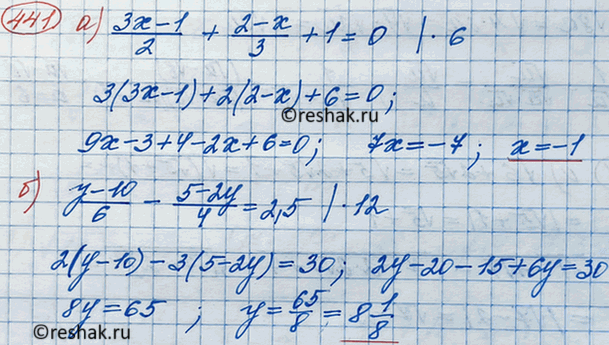 441 а) (3x-1)/2 + (2-x)/3 + 1 = 0 | · 6
©reshak.ru
3(3x-1)+2(2-x)+6=0;
9x-3+4-2x+6=0; 7x=-7; x=-1
б) (y-10)/6 - (5-2y)/4 = 2,5 | · 12
2(y-10)-3(5-2y)=30; 2y-20-15+6y=30
8y=65 ; y=65/8=8 1/8
©reshak.ru
©reshak.ru